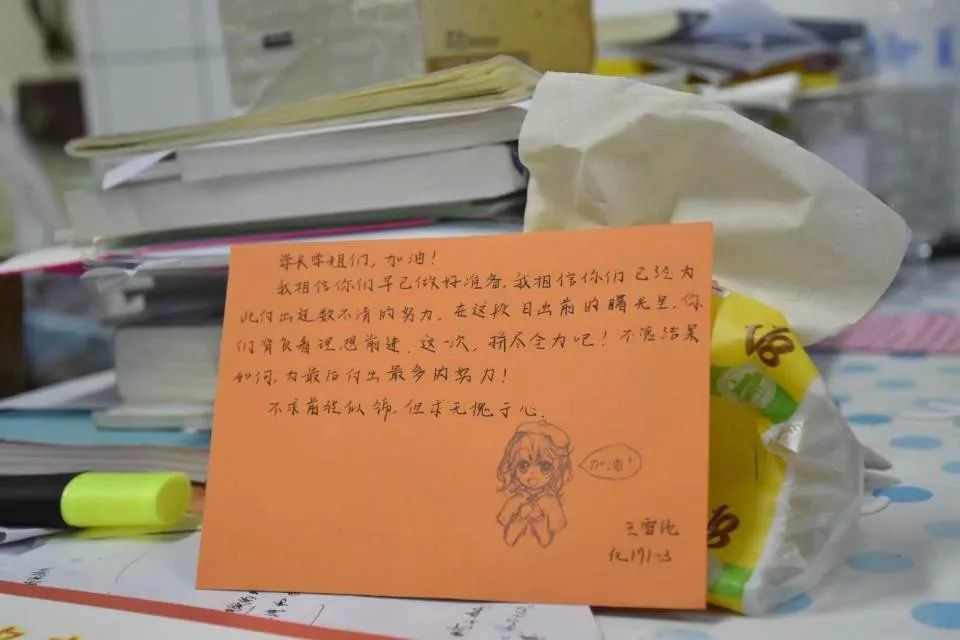 学长学姐们，加油！
我相信你们早已做好准备，我相信你们已经为
此付出过数不清的努力。在这段日出前的曙光里，你
们背负着理想前进，这一次，拼尽全力吧！不管结果
如何，为最后付出最多的努力！
不求前程似锦，但求无愧于心。
加油！
王雪
化191-3